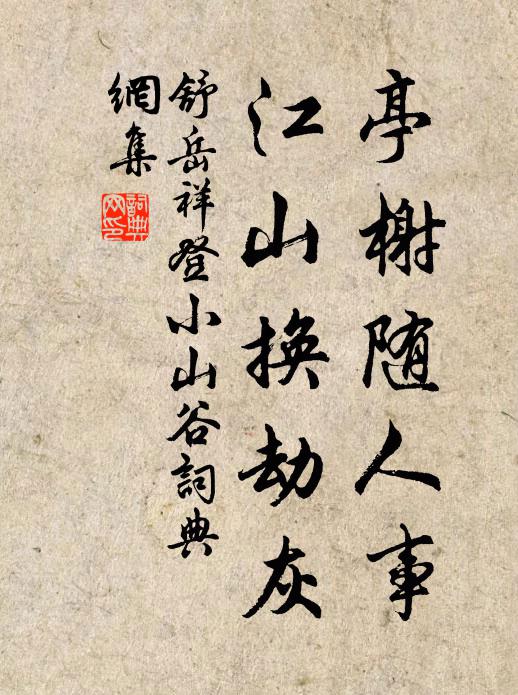 亭榭随人事
江山换劫灰
舒岳祥登小山谷詞典
網集
詞典
网印